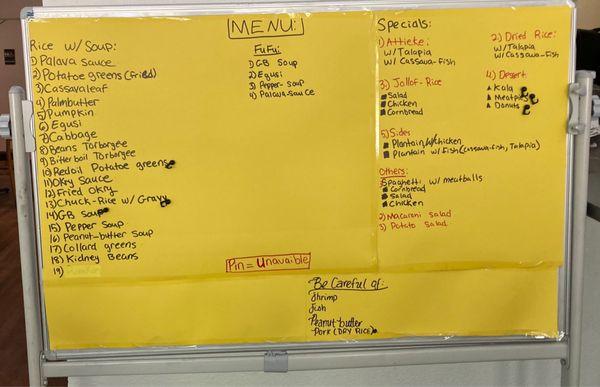 MENU:
Rice w/ Soup:
1) Palava sauce
2) Potatoe greens (fried)
3) Cassavaleaf
4) Palmbutter
5) Pumpkin
6) Egusi
7) Cabbage
8) Beans Torborgee
9) Bitter boil Torborgee
10) Redoil Potatoe greens
11) Okry Sauce
12) Fried Okry
13) Chuck-Rice w/ Gravy
14) GB Soup
15) Pepper Soup
16) Peanut-butter Soup
17) Collard greens
18) Kidney Beans
19)
FuFu:
1) GB Soup
2) Egusi
3) Pepper-Soup
4) Palava-Sauce
Pin = Unavaible
Specials:
1) Attieke:
w/Talapia
w/ Cassava-fish
2) Dried Rice:
w/Talapia
w/ Cassava-Fish
3) Jollof-Rice
Salad
Chicken
Cornbread
4) Dessert
Kala
Meatpies
Donuts
5) Sides
Plantain w/chicken
Plantain w/ Fish (Cassava-fish, Talapia)
Others:
Spaghetti w/ meatballs
Cornbread
Salad
Chicken
2) Macaroni Salad
3) Potato Salad
Be Careful of:
Shrimp
Fish
Peanut butter
Pork (DRY RICE)